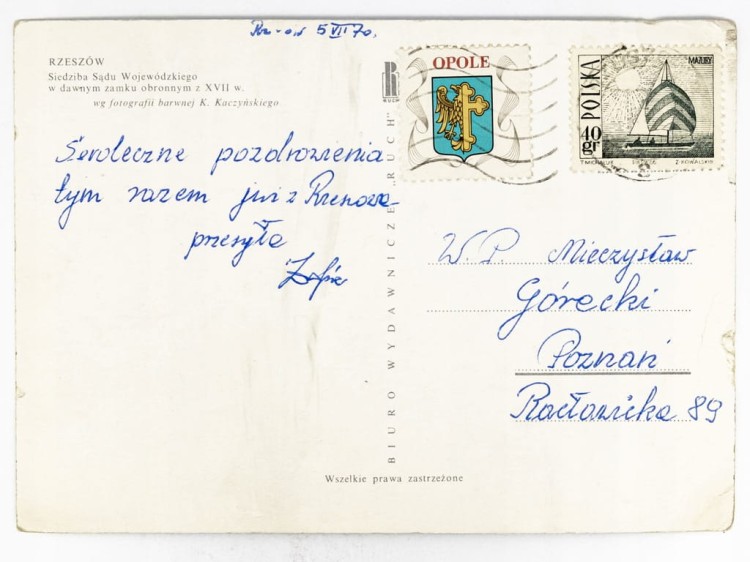 Rz-ów 5 VII 70.
RZESZÓW
Siedziba Sądu Wojewódzkiego
w dawnym zamku obronnym z XVII w.
wg fotografii barwnej K. Kaczyńskiego
Serdeczne pozdrowienia
tym razem już z Rzeszowa
przesyła
Zofia
BIURO WYDAWNICZE „RUCH”
RUCH
OPOLE
POLSKA
MAZURY
40 gr
W. P. Mieczysław
Górecki
Poznań
Racławicka 89
Wszelkie prawa zastrzeżone